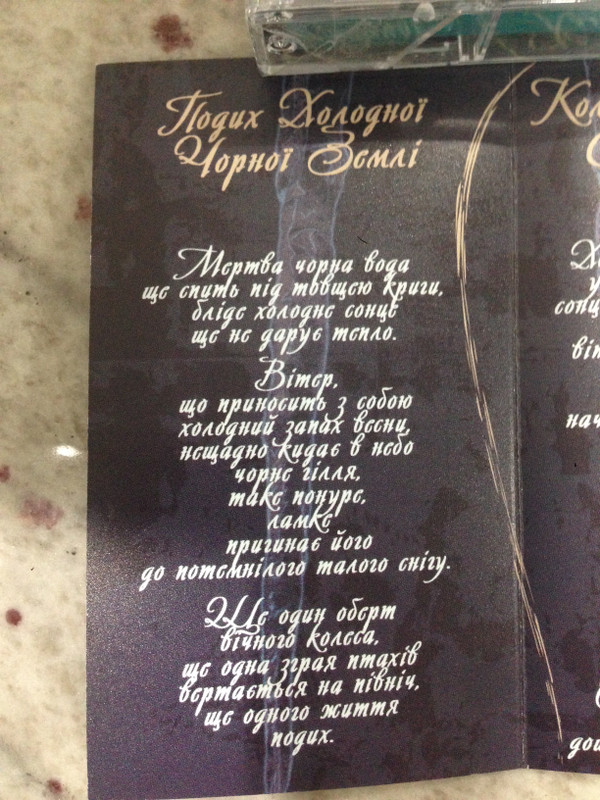 Подих Холодної
Чорної Землі
Мертва чорна вода
ще спить під товщею криги,
бліде холодне сонце
ще не дарує тепло.
Вітер,
що приносить з собою
холодний запах весни,
нещадно кидає в небо
чорне гілля,
таке понуре,
ламке
пригинає його
до потемнілого талого снігу.
Ще один оберт
вічного колеса,
ще одна зграя птахів
вертається на північ,
ще одного життя
подих.